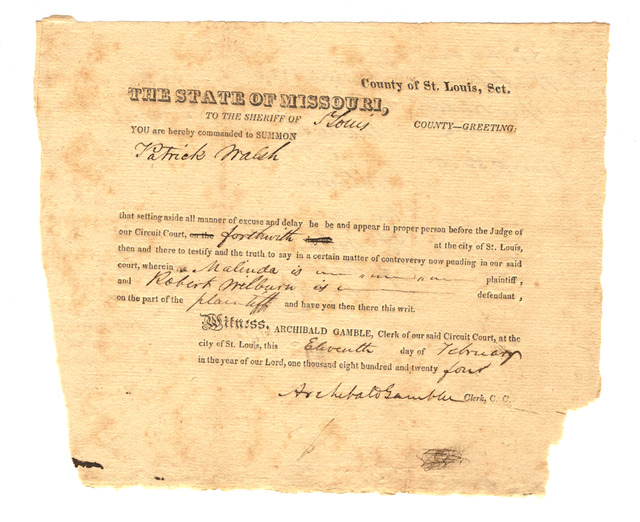 County of St. Louis, Sct.
THE STATE OF MISSOURI,
TO THE SHERIFF OF St Louis COUNTY—GREETING:
YOU are hereby commanded to SUMMON
Patrick Walsh
that setting aside all manner of excuse and delay he be and appear in proper person before the Judge of
our Circuit Court, on the forthwith at the city of St. Louis,
then and there to testify and the truth to say in a certain matter of controversy now pending in our said
court, wherein Malinda is plaintiff,
and Robert Welburn is defendant,
on the part of the plaintiff and have you then there this writ.
Witness, ARCHIBALD GAMBLE, Clerk of our said Circuit Court, at the
city of St. Louis, this Eleventh day of February
in the year of our Lord, one thousand eight hundred and twenty four
Archibald Gamble Clerk, C. C.